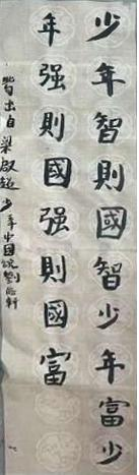 少年智則國智少年富少
年强則國强則國富
皆出自梁啟超少年中国说劉